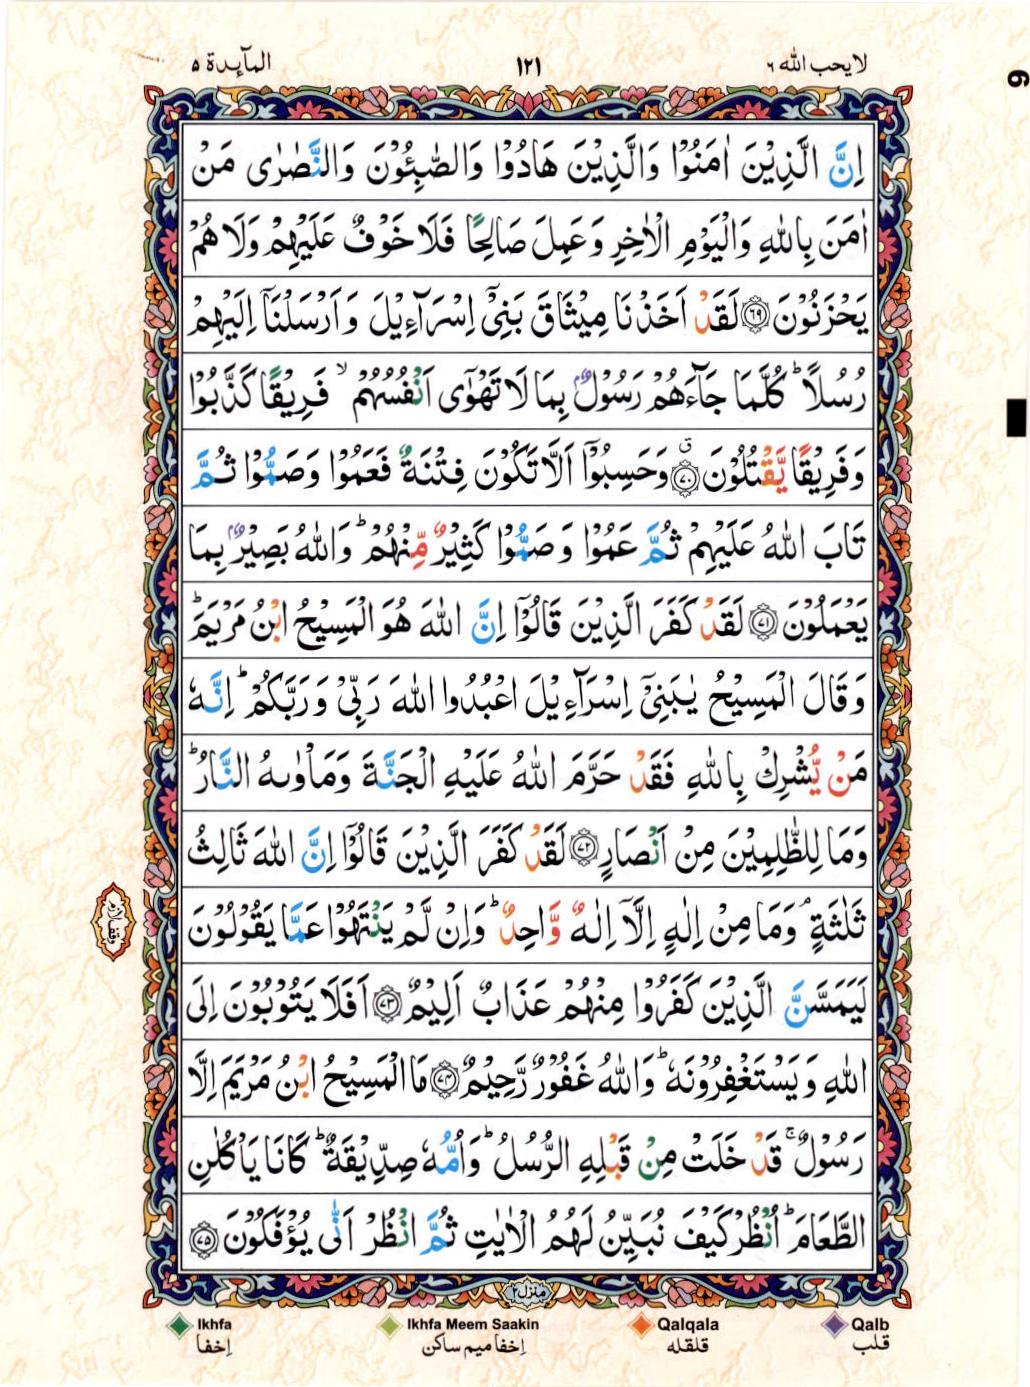 لايحب الله ٦
١٢١
المآىِٕدة ٥
اِنَّ الَّذِيْنَ اٰمَنُوْا وَالَّذِيْنَ هَادُوْا وَالصّٰبِـُٔوْنَ وَالنَّصٰرٰى مَنْ
اٰمَنَ بِاللّٰهِ وَالْيَوْمِ الْاٰخِرِ وَعَمِلَ صَالِحًا فَلَا خَوْفٌ عَلَيْهِمْ وَلَا هُمْ
يَحْزَنُوْنَ ﴿٦٩﴾ لَقَدْ اَخَذْنَا مِيْثَاقَ بَنِيْۤ اِسْرَآءِيْلَ وَاَرْسَلْنَاۤ اِلَيْهِمْ
رُسُلًا ؕ كُلَّمَا جَآءَهُمْ رَسُوْلٌۢ بِمَا لَا تَهْوٰۤى اَنْفُسُهُمْ ۙ فَرِيْقًا كَذَّبُوْا
وَفَرِيْقًا يَّقْتُلُوْنَ ﴿٧٠﴾ ق وَحَسِبُوْۤا اَلَّا تَكُوْنَ فِتْنَةٌ فَعَمُوْا وَصَمُّوْا ثُمَّ
تَابَ اللّٰهُ عَلَيْهِمْ ثُمَّ عَمُوْا وَصَمُّوْا كَثِيْرٌ مِّنْهُمْ ؕ وَاللّٰهُ بَصِيْرٌۢ بِمَا
يَعْمَلُوْنَ ﴿٧١﴾ لَقَدْ كَفَرَ الَّذِيْنَ قَالُوْۤا اِنَّ اللّٰهَ هُوَ الْمَسِيْحُ ابْنُ مَرْيَمَ ؕ
وَقَالَ الْمَسِيْحُ يٰبَنِيْۤ اِسْرَآءِيْلَ اعْبُدُوا اللّٰهَ رَبِّيْ وَرَبَّكُمْ ؕ اِنَّهٗ
مَنْ يُّشْرِكْ بِاللّٰهِ فَقَدْ حَرَّمَ اللّٰهُ عَلَيْهِ الْجَنَّةَ وَمَاْوٰىهُ النَّارُ ؕ
وَمَا لِلظّٰلِمِيْنَ مِنْ اَنْصَارٍ ﴿٧٢﴾ لَقَدْ كَفَرَ الَّذِيْنَ قَالُوْۤا اِنَّ اللّٰهَ ثَالِثُ
ثَلٰثَةٍ ۘ وَمَا مِنْ اِلٰهٍ اِلَّاۤ اِلٰهٌ وَّاحِدٌ ؕ وَاِنْ لَّمْ يَنْتَهُوْا عَمَّا يَقُوْلُوْنَ
لَيَمَسَّنَّ الَّذِيْنَ كَفَرُوْا مِنْهُمْ عَذَابٌ اَلِيْمٌ ﴿٧٣﴾ اَفَلَا يَتُوْبُوْنَ اِلَى
اللّٰهِ وَيَسْتَغْفِرُوْنَهٗ ؕ وَاللّٰهُ غَفُوْرٌ رَّحِيْمٌ ﴿٧٤﴾ مَا الْمَسِيْحُ ابْنُ مَرْيَمَ اِلَّا
رَسُوْلٌ ۚ قَدْ خَلَتْ مِنْ قَبْلِهِ الرُّسُلُ ؕ وَاُمُّهٗ صِدِّيْقَةٌ ؕ كَانَا يَاْكُلٰنِ
الطَّعَامَ ؕ اُنْظُرْ كَيْفَ نُبَيِّنُ لَهُمُ الْاٰيٰتِ ثُمَّ انْظُرْ اَنّٰى يُؤْفَكُوْنَ ﴿٧٥﴾
وقف لازم
منزل ٢
Ikhfa Ikhfa Meem Saakin Qalqala Qalb
اِخفا اِخفا ميم ساكن قلقله قلب
6